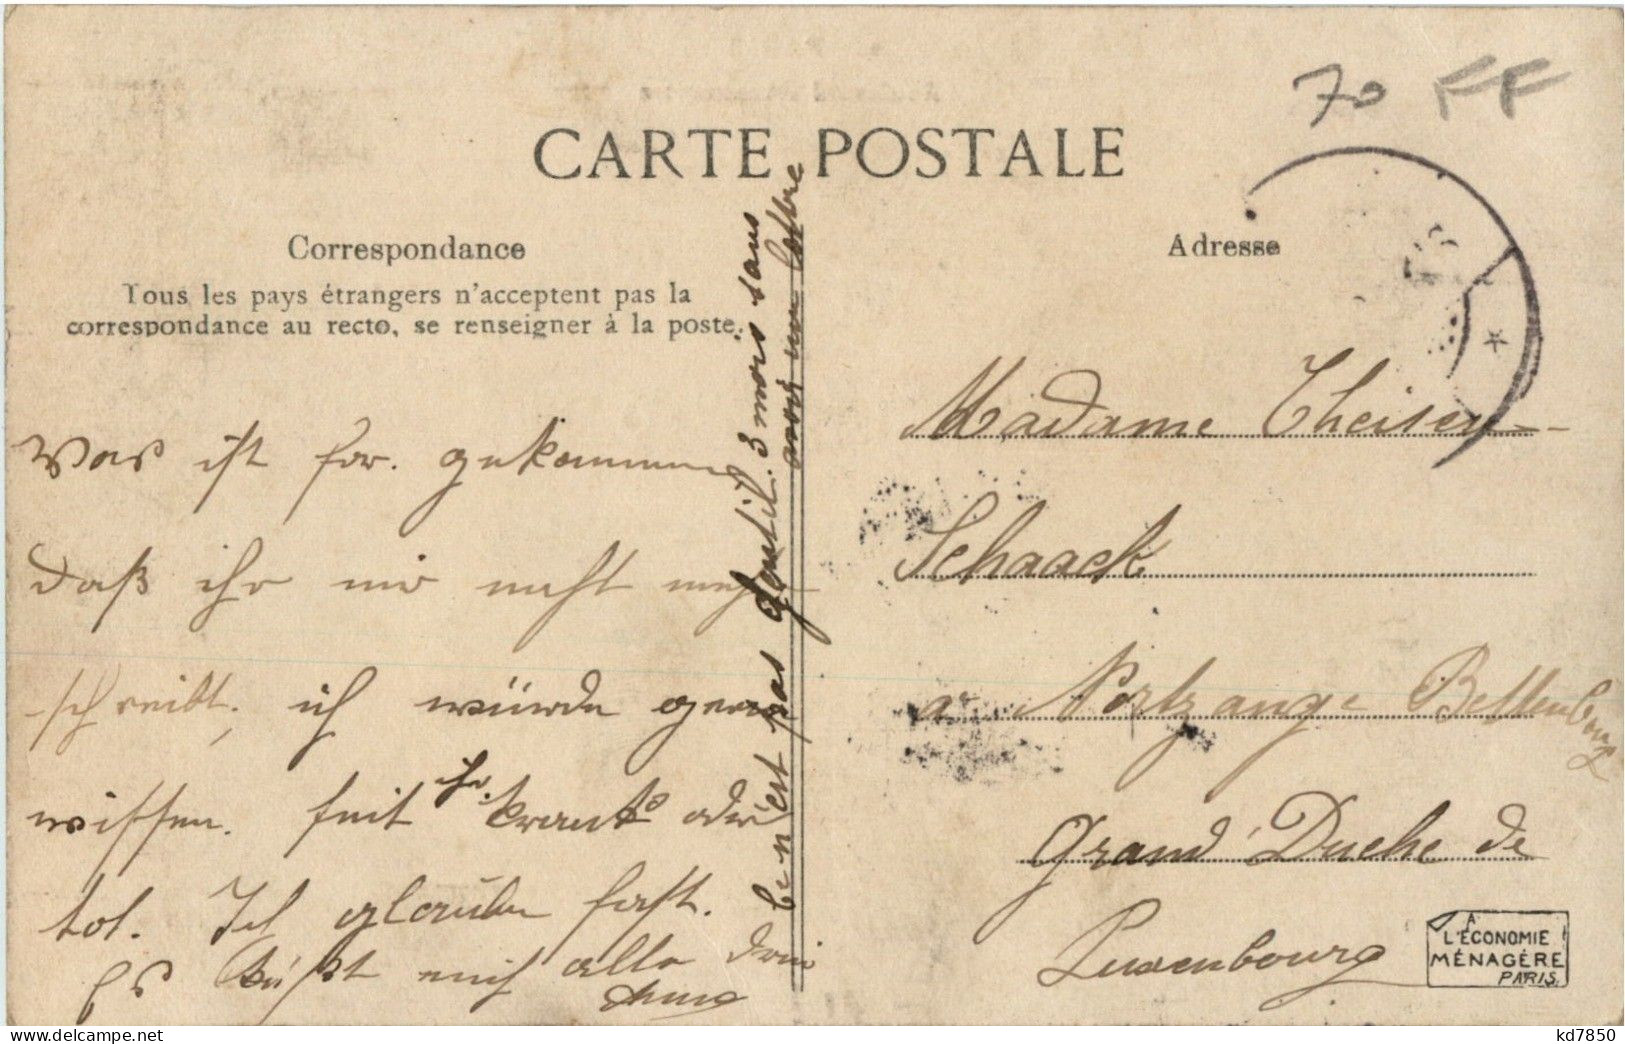 70 FF
CARTE POSTALE
Correspondance
Tous les pays étrangers n'acceptent pas la
correspondance au recto, se renseigner à la poste.
Was ist for. gekommen
daß ihr mir nicht mehr
schreibt, ich würde gern
wissen. seit ihr krank oder
tot. Ich glaube fast.
Es küßt euch alle
Ce n'est pas gentil. 3 mois sans
avoir une lettre
Adresse
Madame Theisen-
Schaack
a Nortzange Bettenbourg
Grand Duche de
Luxembourg
A
L'ÉCONOMIE
MÉNAGÈRE
PARIS.
kd7850